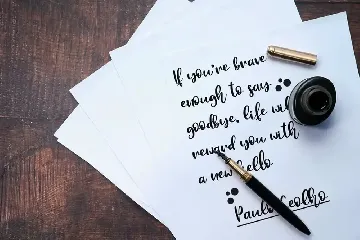 If you're brave
enough to say
goodbye, life wil
reward you with
a new hello.
Paulo Ceolho